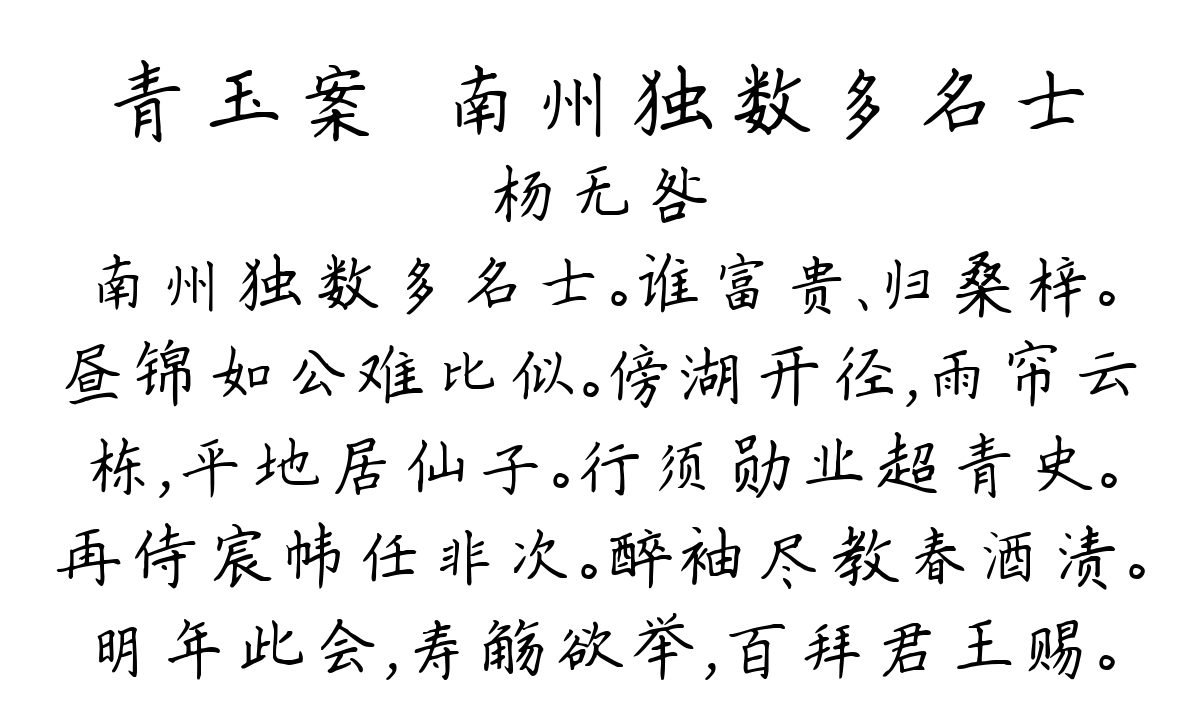 青玉案 南州独数多名士
杨无咎
南州独数多名士。谁富贵、归桑梓。
昼锦如公难比似。傍湖开径,雨帘云
栋,平地居仙子。行须勋业超青史。
再侍宸帏任非次。醉袖尽教春酒渍。
明年此会,寿觞欲举,百拜君王赐。